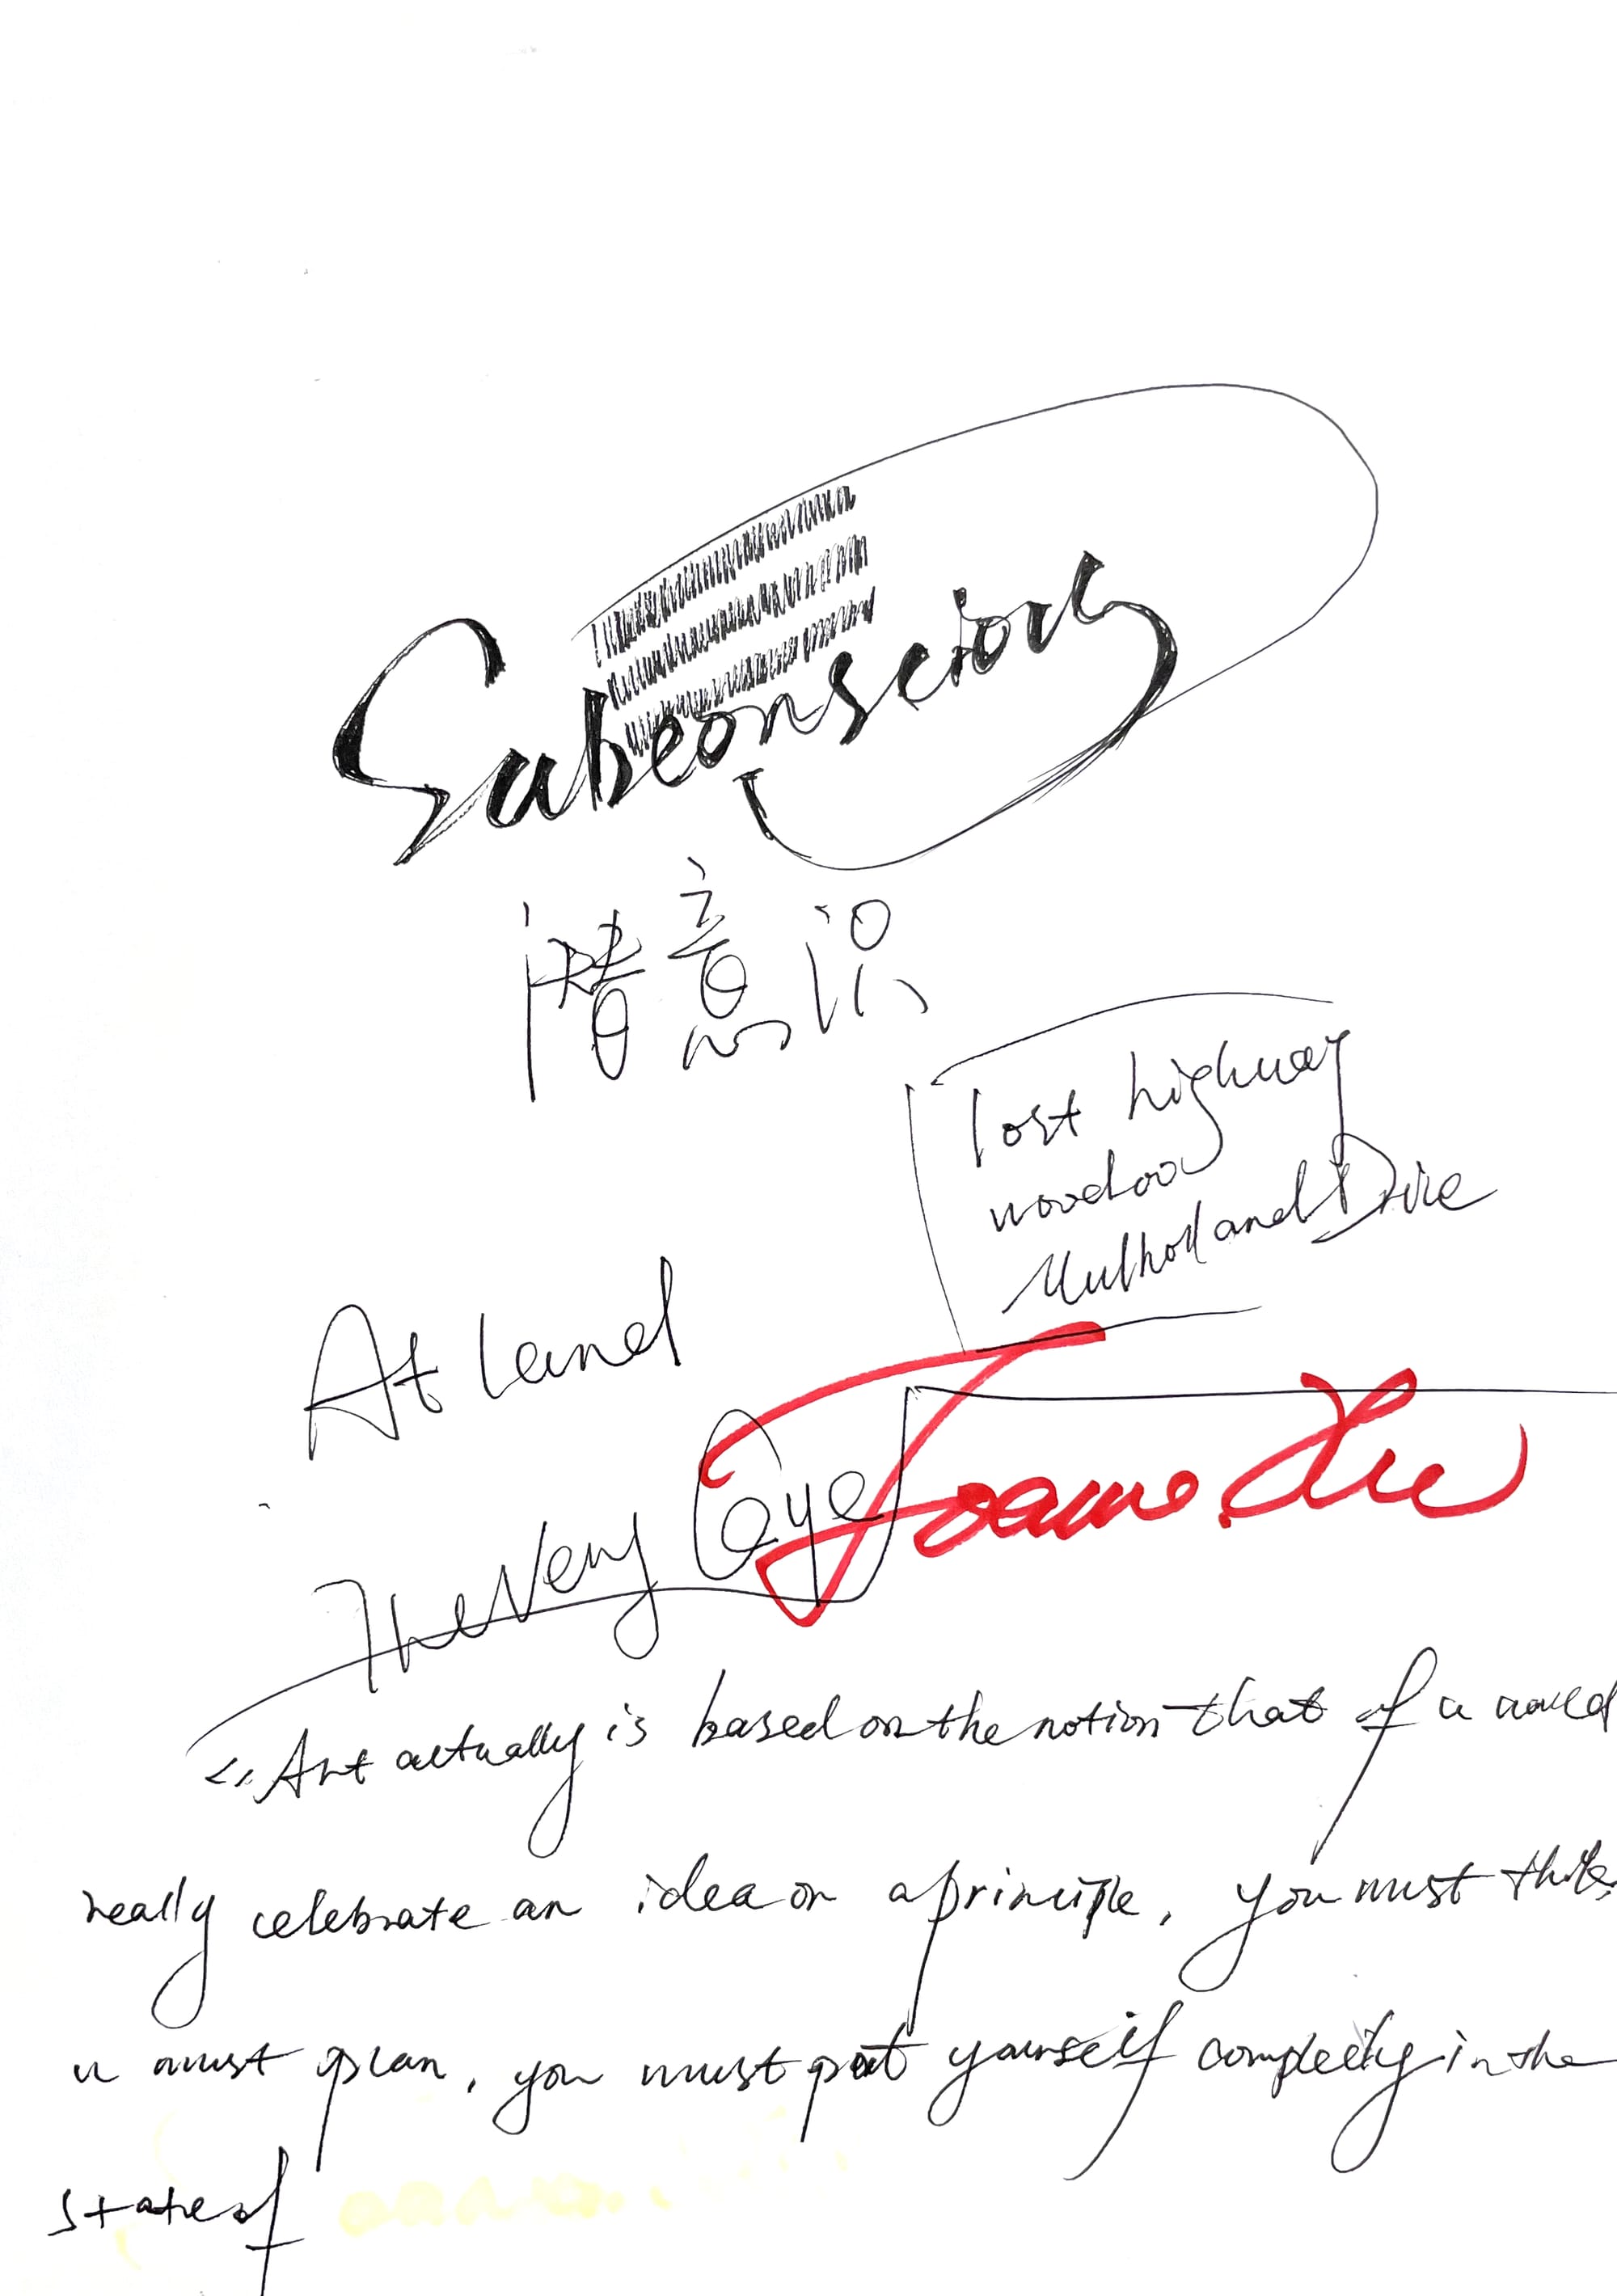 Subconscious
潜意识
lost highway
voodoo
Mulholland Drive
At Land
The Very Eye
Joanne.
"Art actually is based on the notion that if u would
really celebrate an idea or a principle, you must think,
u must plan, you must put yourself completely in the
state of